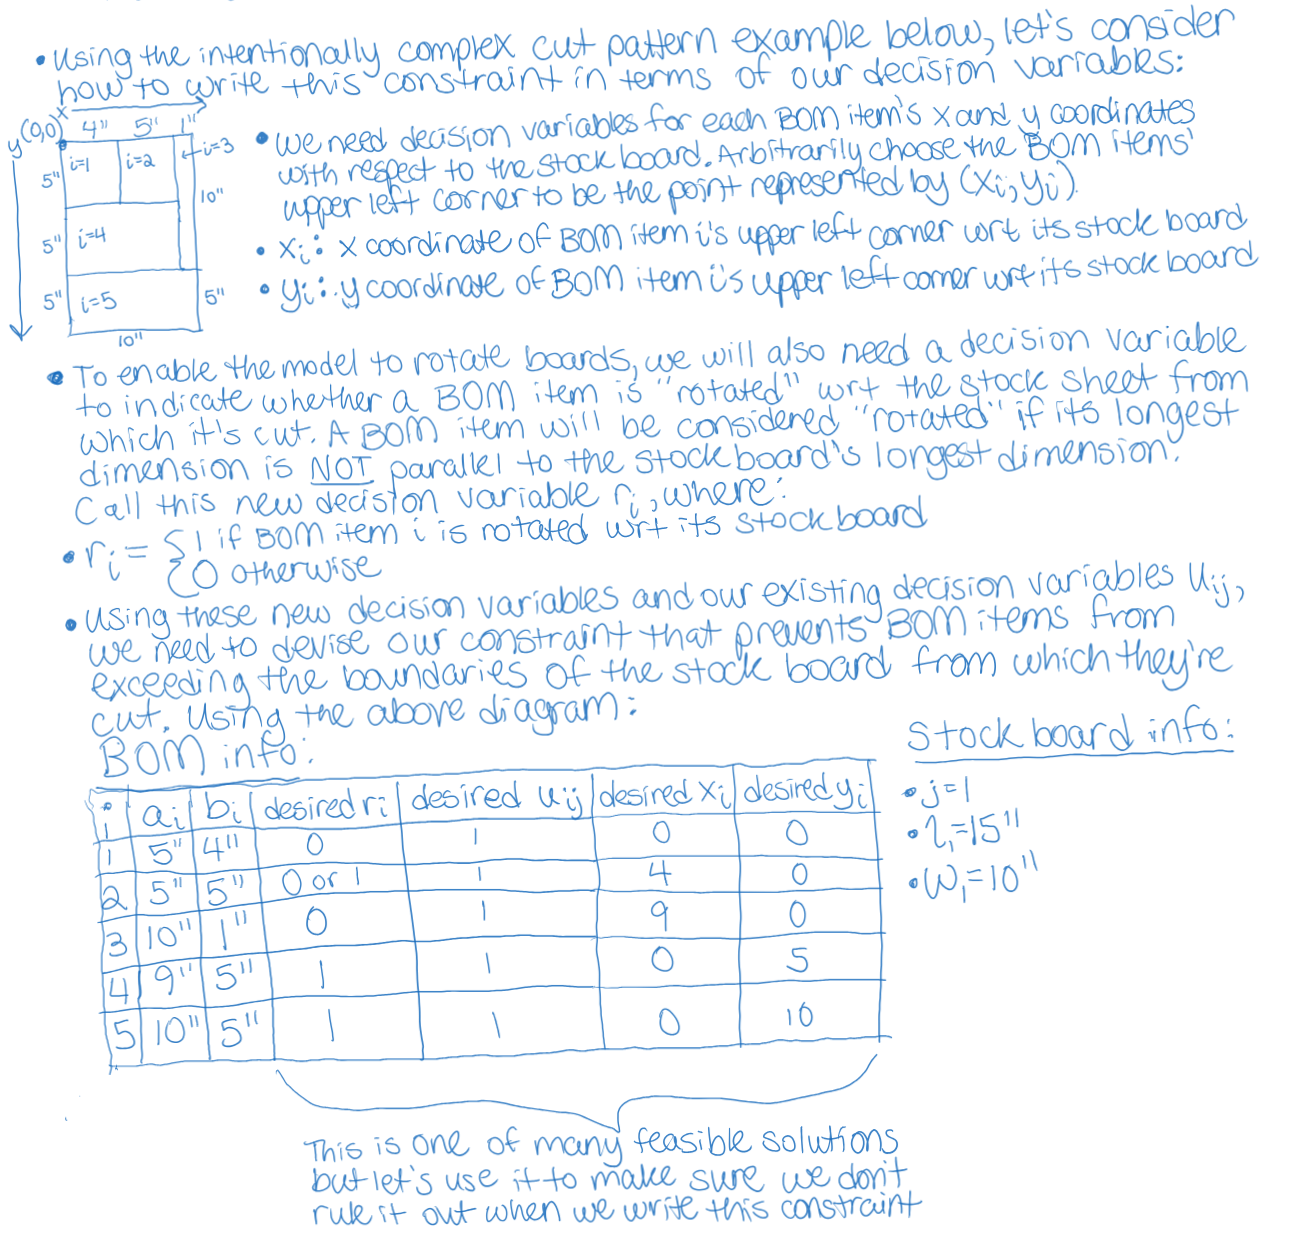 • Using the intentionally complex cut pattern example below, let's consider
how to write this constraint in terms of our decision variables:
x
y (0,0) 4" 5" 1"
i=1 i=2 ←i=3
5" 10"
5" i=4
5" i=5 5"
10"
• We need decision variables for each BOM item's x and y coordinates
with respect to the stock board. Arbitrarily choose the BOM items'
upper left corner to be the point represented by (xi, yi).
• xi: x coordinate of BOM item i's upper left corner wrt its stock board
• yi: y coordinate of BOM item i's upper left corner wrt its stock board
• To enable the model to rotate boards, we will also need a decision variable
to indicate whether a BOM item is "rotated" wrt the stock sheet from
which it's cut. A BOM item will be considered "rotated" if its longest
dimension is NOT parallel to the stock board's longest dimension.
Call this new decision variable ri, where:
• ri = { 1 if BOM item i is rotated wrt its stock board
0 otherwise
• Using these new decision variables and our existing decision variables uij,
we need to devise our constraint that prevents BOM items from
exceeding the boundaries of the stock board from which they're
cut. Using the above diagram:
BOM info:
i ai bi desired ri desired uij desired xi desired yi
1 5" 4" 0 1 0 0
2 5" 5" 0 or 1 1 4 0
3 10" 1" 0 1 9 0
4 9" 5" 1 1 0 5
5 10" 5" 1 1 0 10
Stock board info:
• j=1
• l1=15"
• w1=10"
This is one of many feasible solutions
but let's use it to make sure we don't
rule it out when we write this constraint